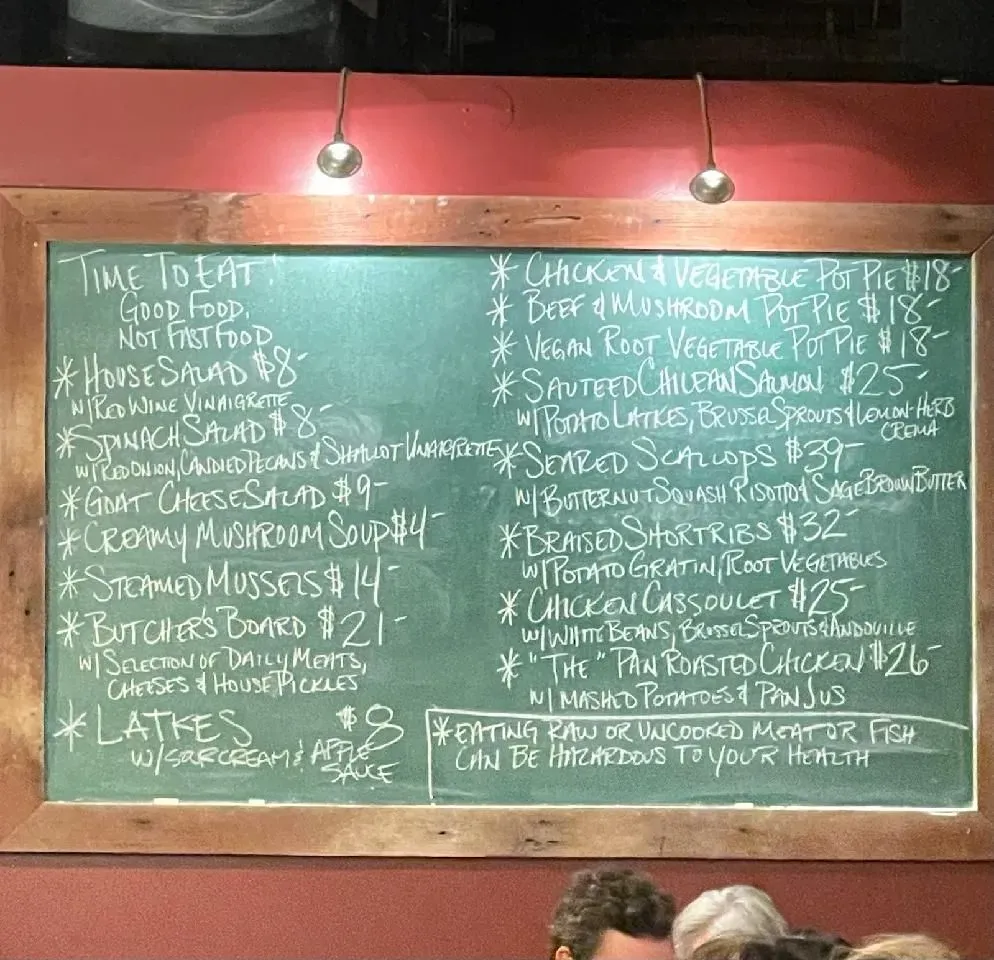 TIME TO EAT!
GOOD FOOD,
NOT FAST FOOD
* HOUSE SALAD $8-
W/RED WINE VINAIGRETTE
* SPINACH SALAD $8-
W/RED ONION, CANDIED PECANS & SHALLOT VINAIGRETTE
* GOAT CHEESE SALAD $9-
* CREAMY MUSHROOM SOUP $4-
* STEAMED MUSSELS $14-
* BUTCHER'S BOARD $21-
W/ SELECTION OF DAILY MEATS,
CHEESES & HOUSE PICKLES
* LATKES $8
W/SOUR CREAM & APPLE
SAUCE
* CHICKEN & VEGETABLE POT PIE $18-
* BEEF & MUSHROOM POT PIE $18-
* VEGAN ROOT VEGETABLE POT PIE $18-
* SAUTEED CHILEAN SALMON $25-
W/POTATO LATKES, BRUSSEL SPROUTS & LEMON-HERB
CREMA
* SEARED SCALLOPS $39-
W/BUTTERNUT SQUASH RISOTTO & SAGE BROWN BUTTER
* BRAISED SHORTRIBS $32-
W/POTATO GRATIN, ROOT VEGETABLES
* CHICKEN CASSOULET $25-
W/WHITE BEANS, BRUSSEL SPROUTS & ANDOUILLE
* "THE" PAN ROASTED CHICKEN $26-
W/ MASHED POTATOES & PAN JUS
* EATING RAW OR UNCOOKED MEAT OR FISH
CAN BE HAZARDOUS TO YOUR HEALTH